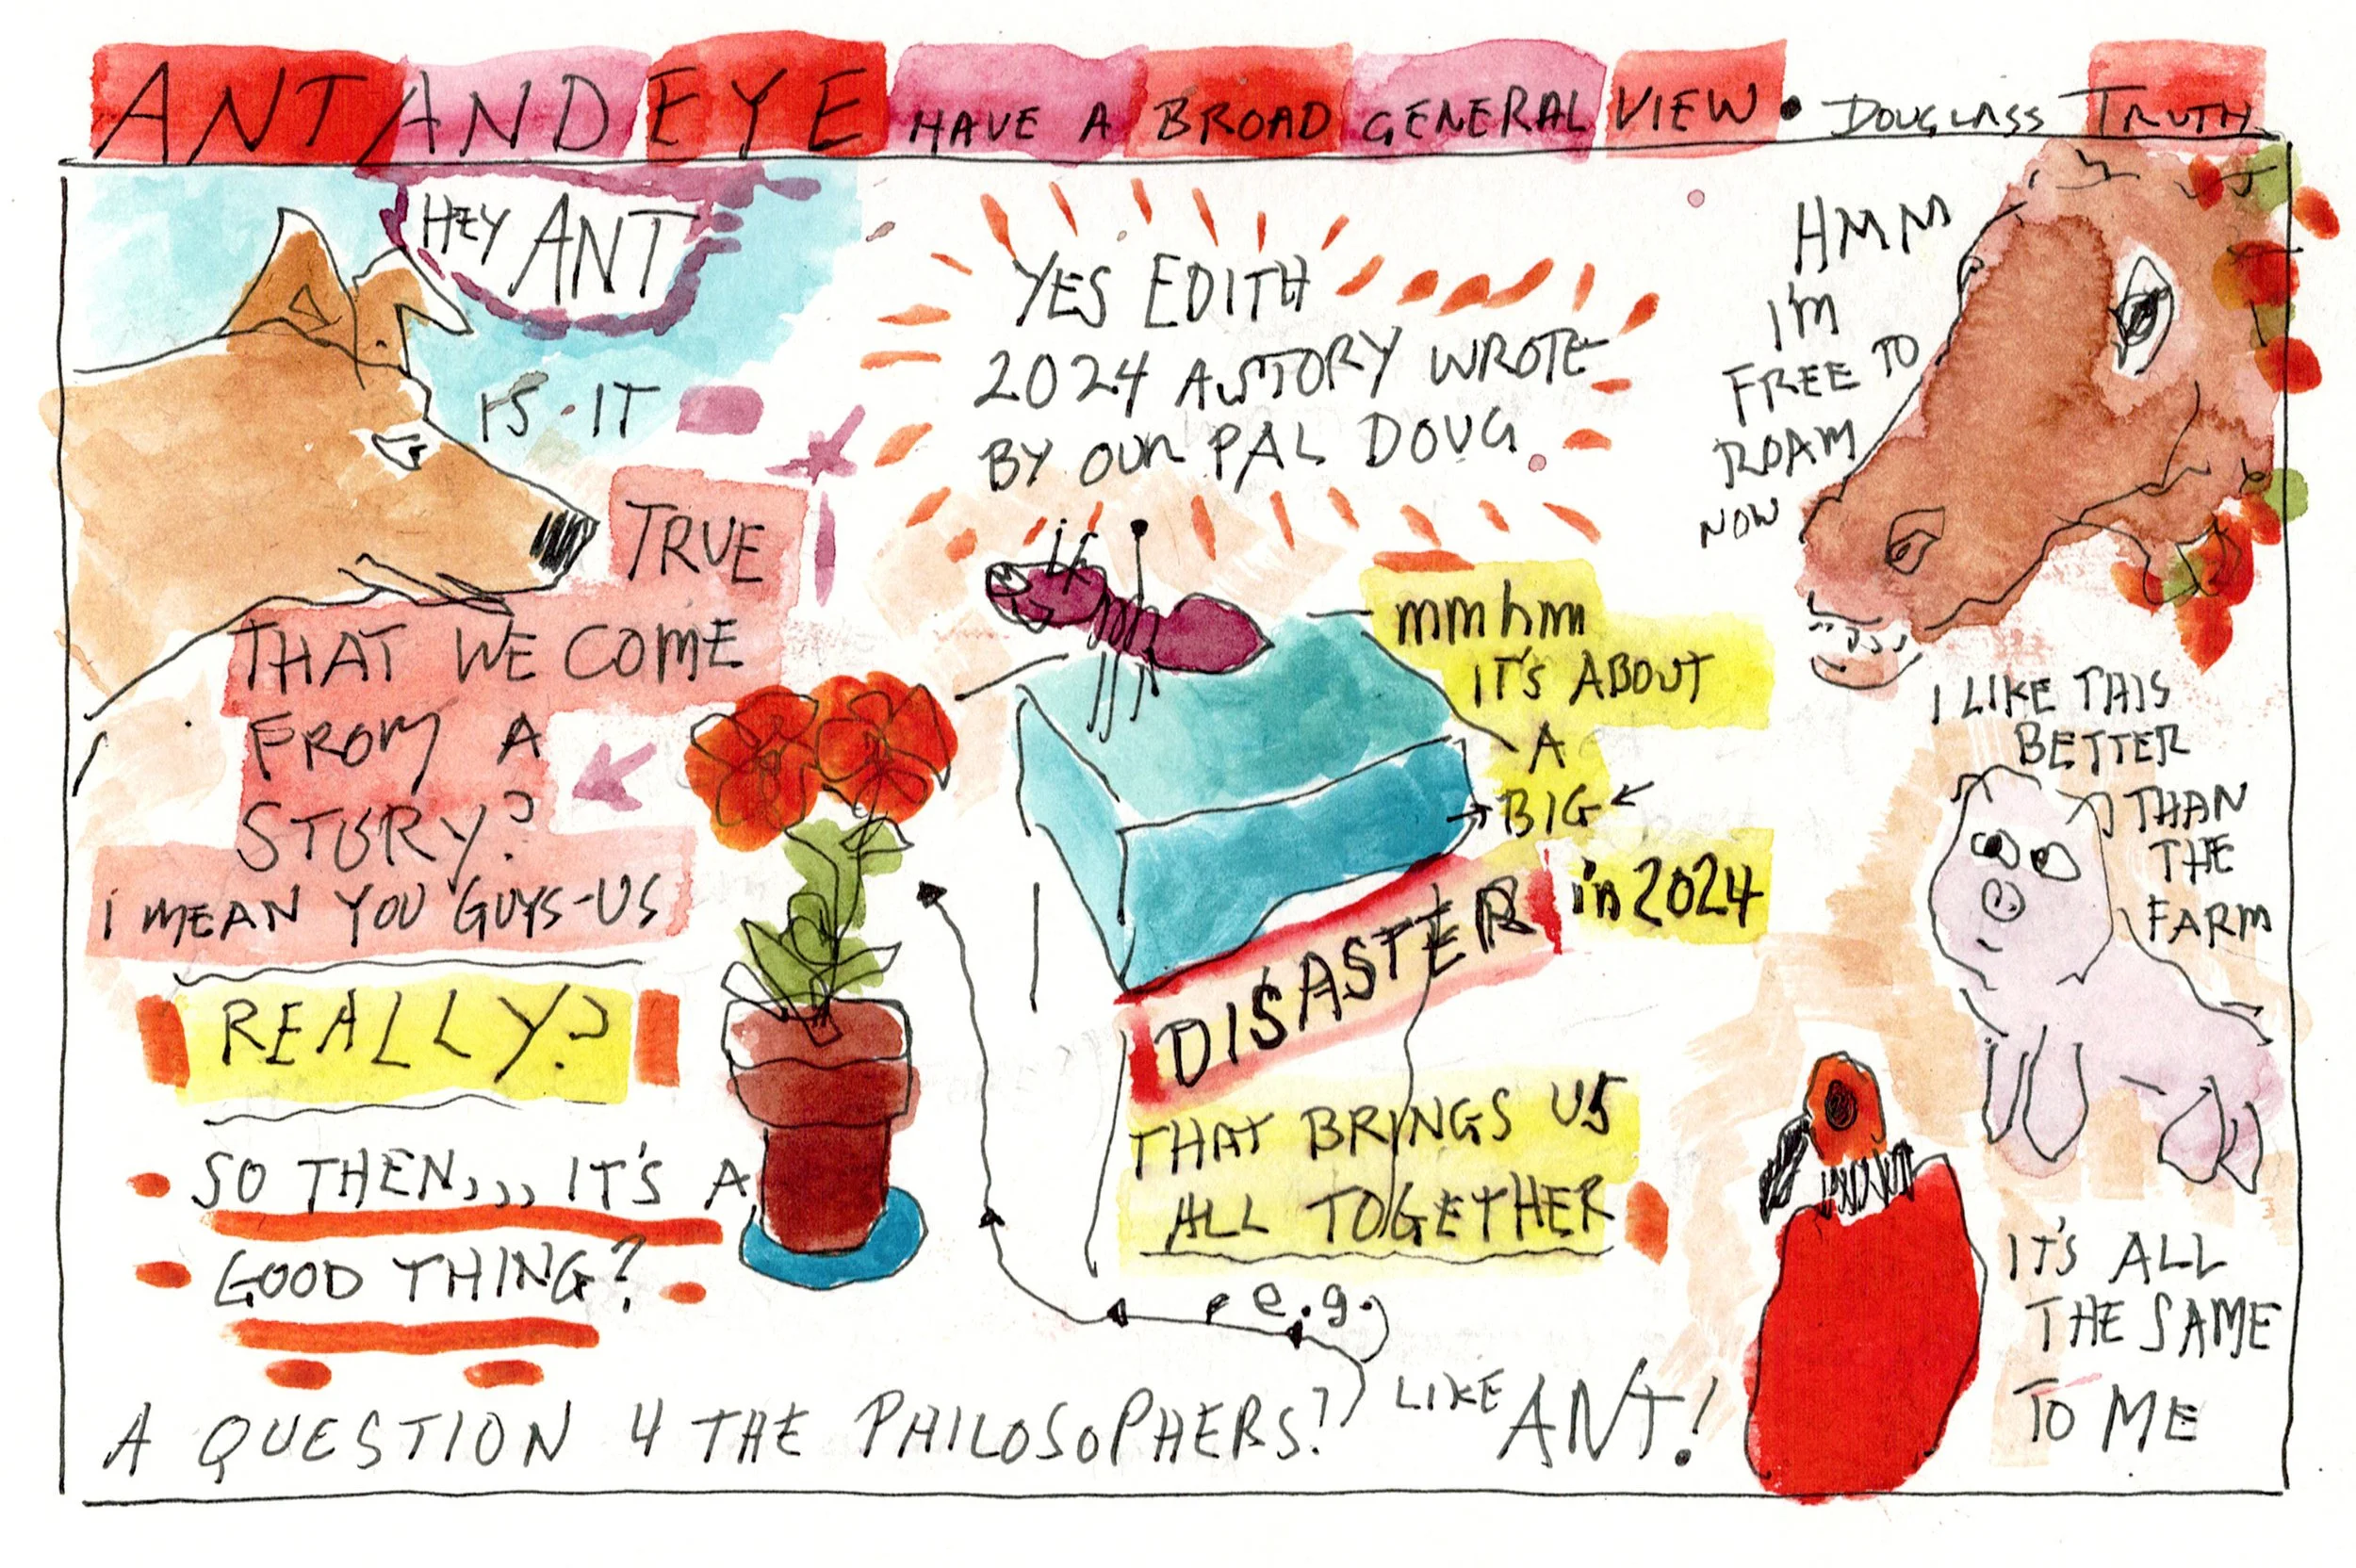 ANT AND EYE HAVE A BROAD GENERAL VIEW • DOUGLASS TRUTH
HEY ANT
IS·IT
TRUE
THAT WE COME
FROM A
STORY?
I MEAN YOU GUYS-US
REALLY?
SO THEN,,,, IT'S A
GOOD THING?
A QUESTION 4 THE PHILOSOPHERS?
YES EDITH
2024 A STORY WROTE
BY OUR PAL DOUG
mmhm
IT'S ABOUT
A
BIG
DISASTER in 2024
THAT BRINGS US
ALL TOGETHER
e.g.
LIKE ANT!
HMM
I'M
FREE TO
ROAM
NOW
I LIKE THIS
BETTER
THAN
THE
FARM
IT'S ALL
THE SAME
TO ME